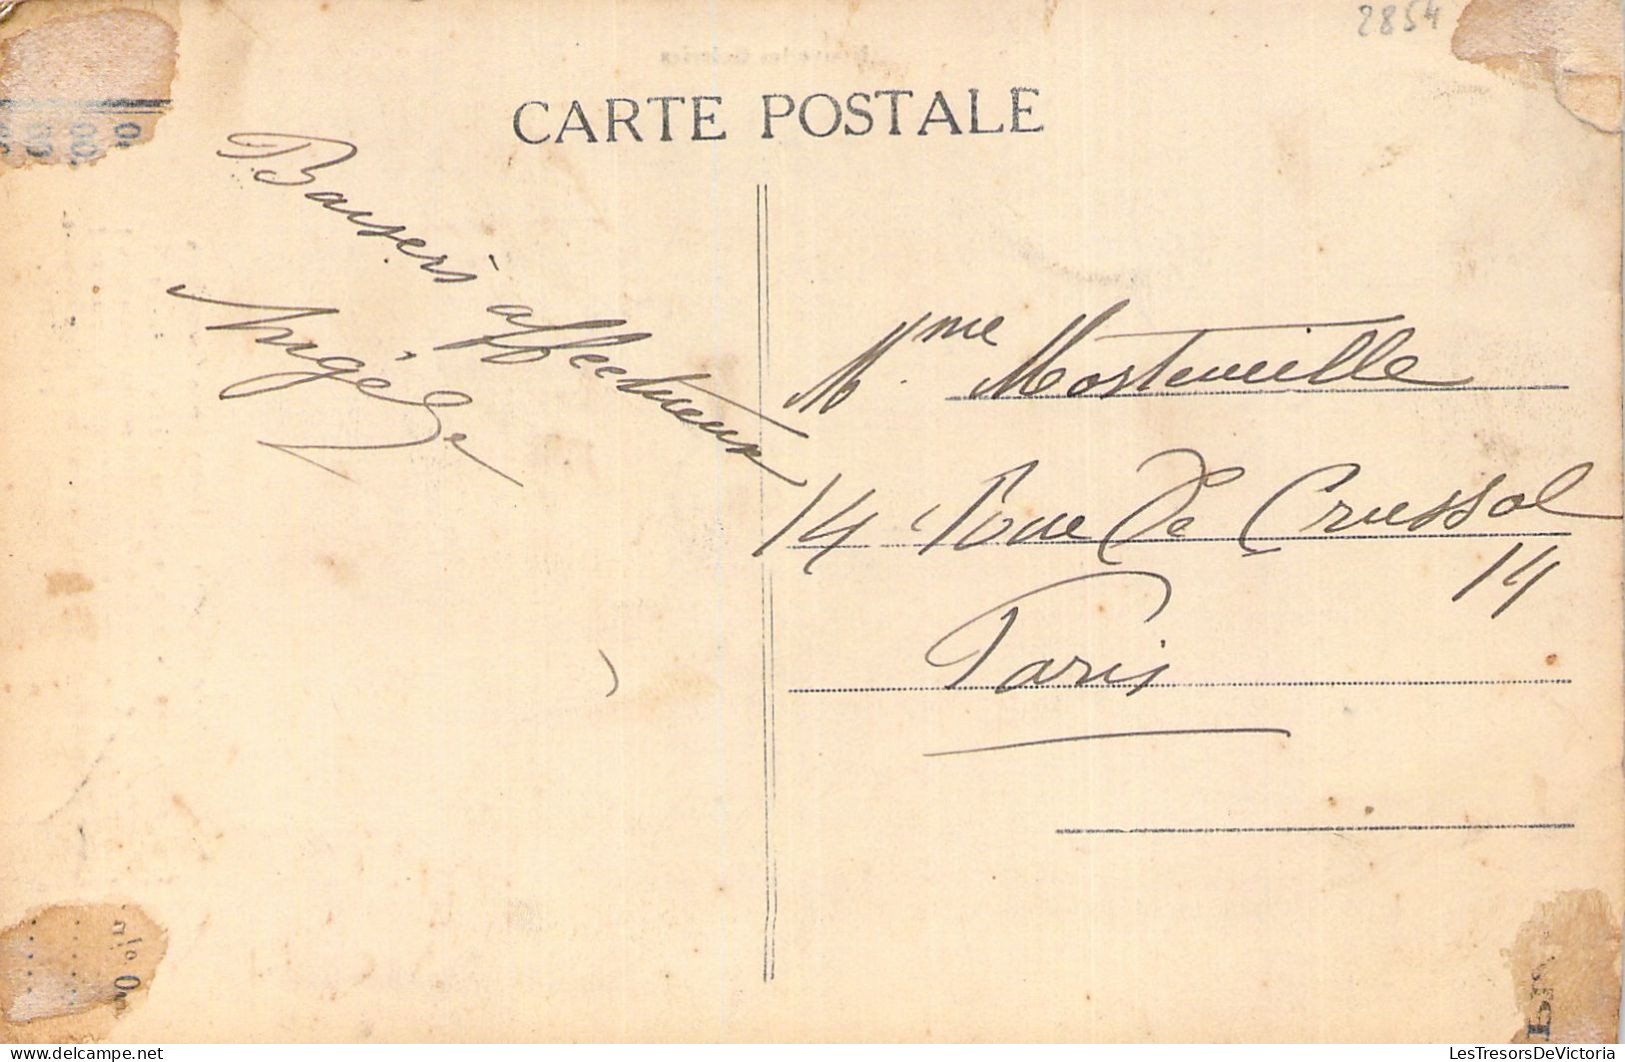 2854
CARTE POSTALE
Baisers affectueux
Angèle
Mme Mosteuille
14 Rue De Crussol
14
Paris
LesTresorsDeVictoria